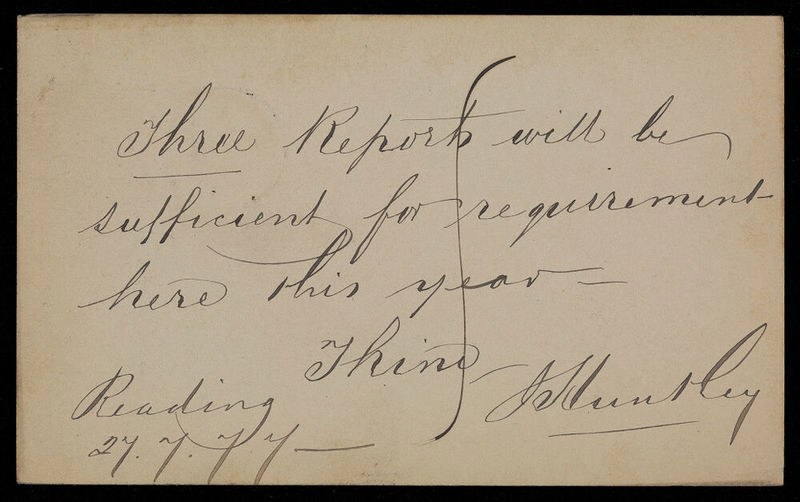 Three Reports will be
sufficient for requirement
here this year —
Thine
J Huntley
Reading
27.7.77 —